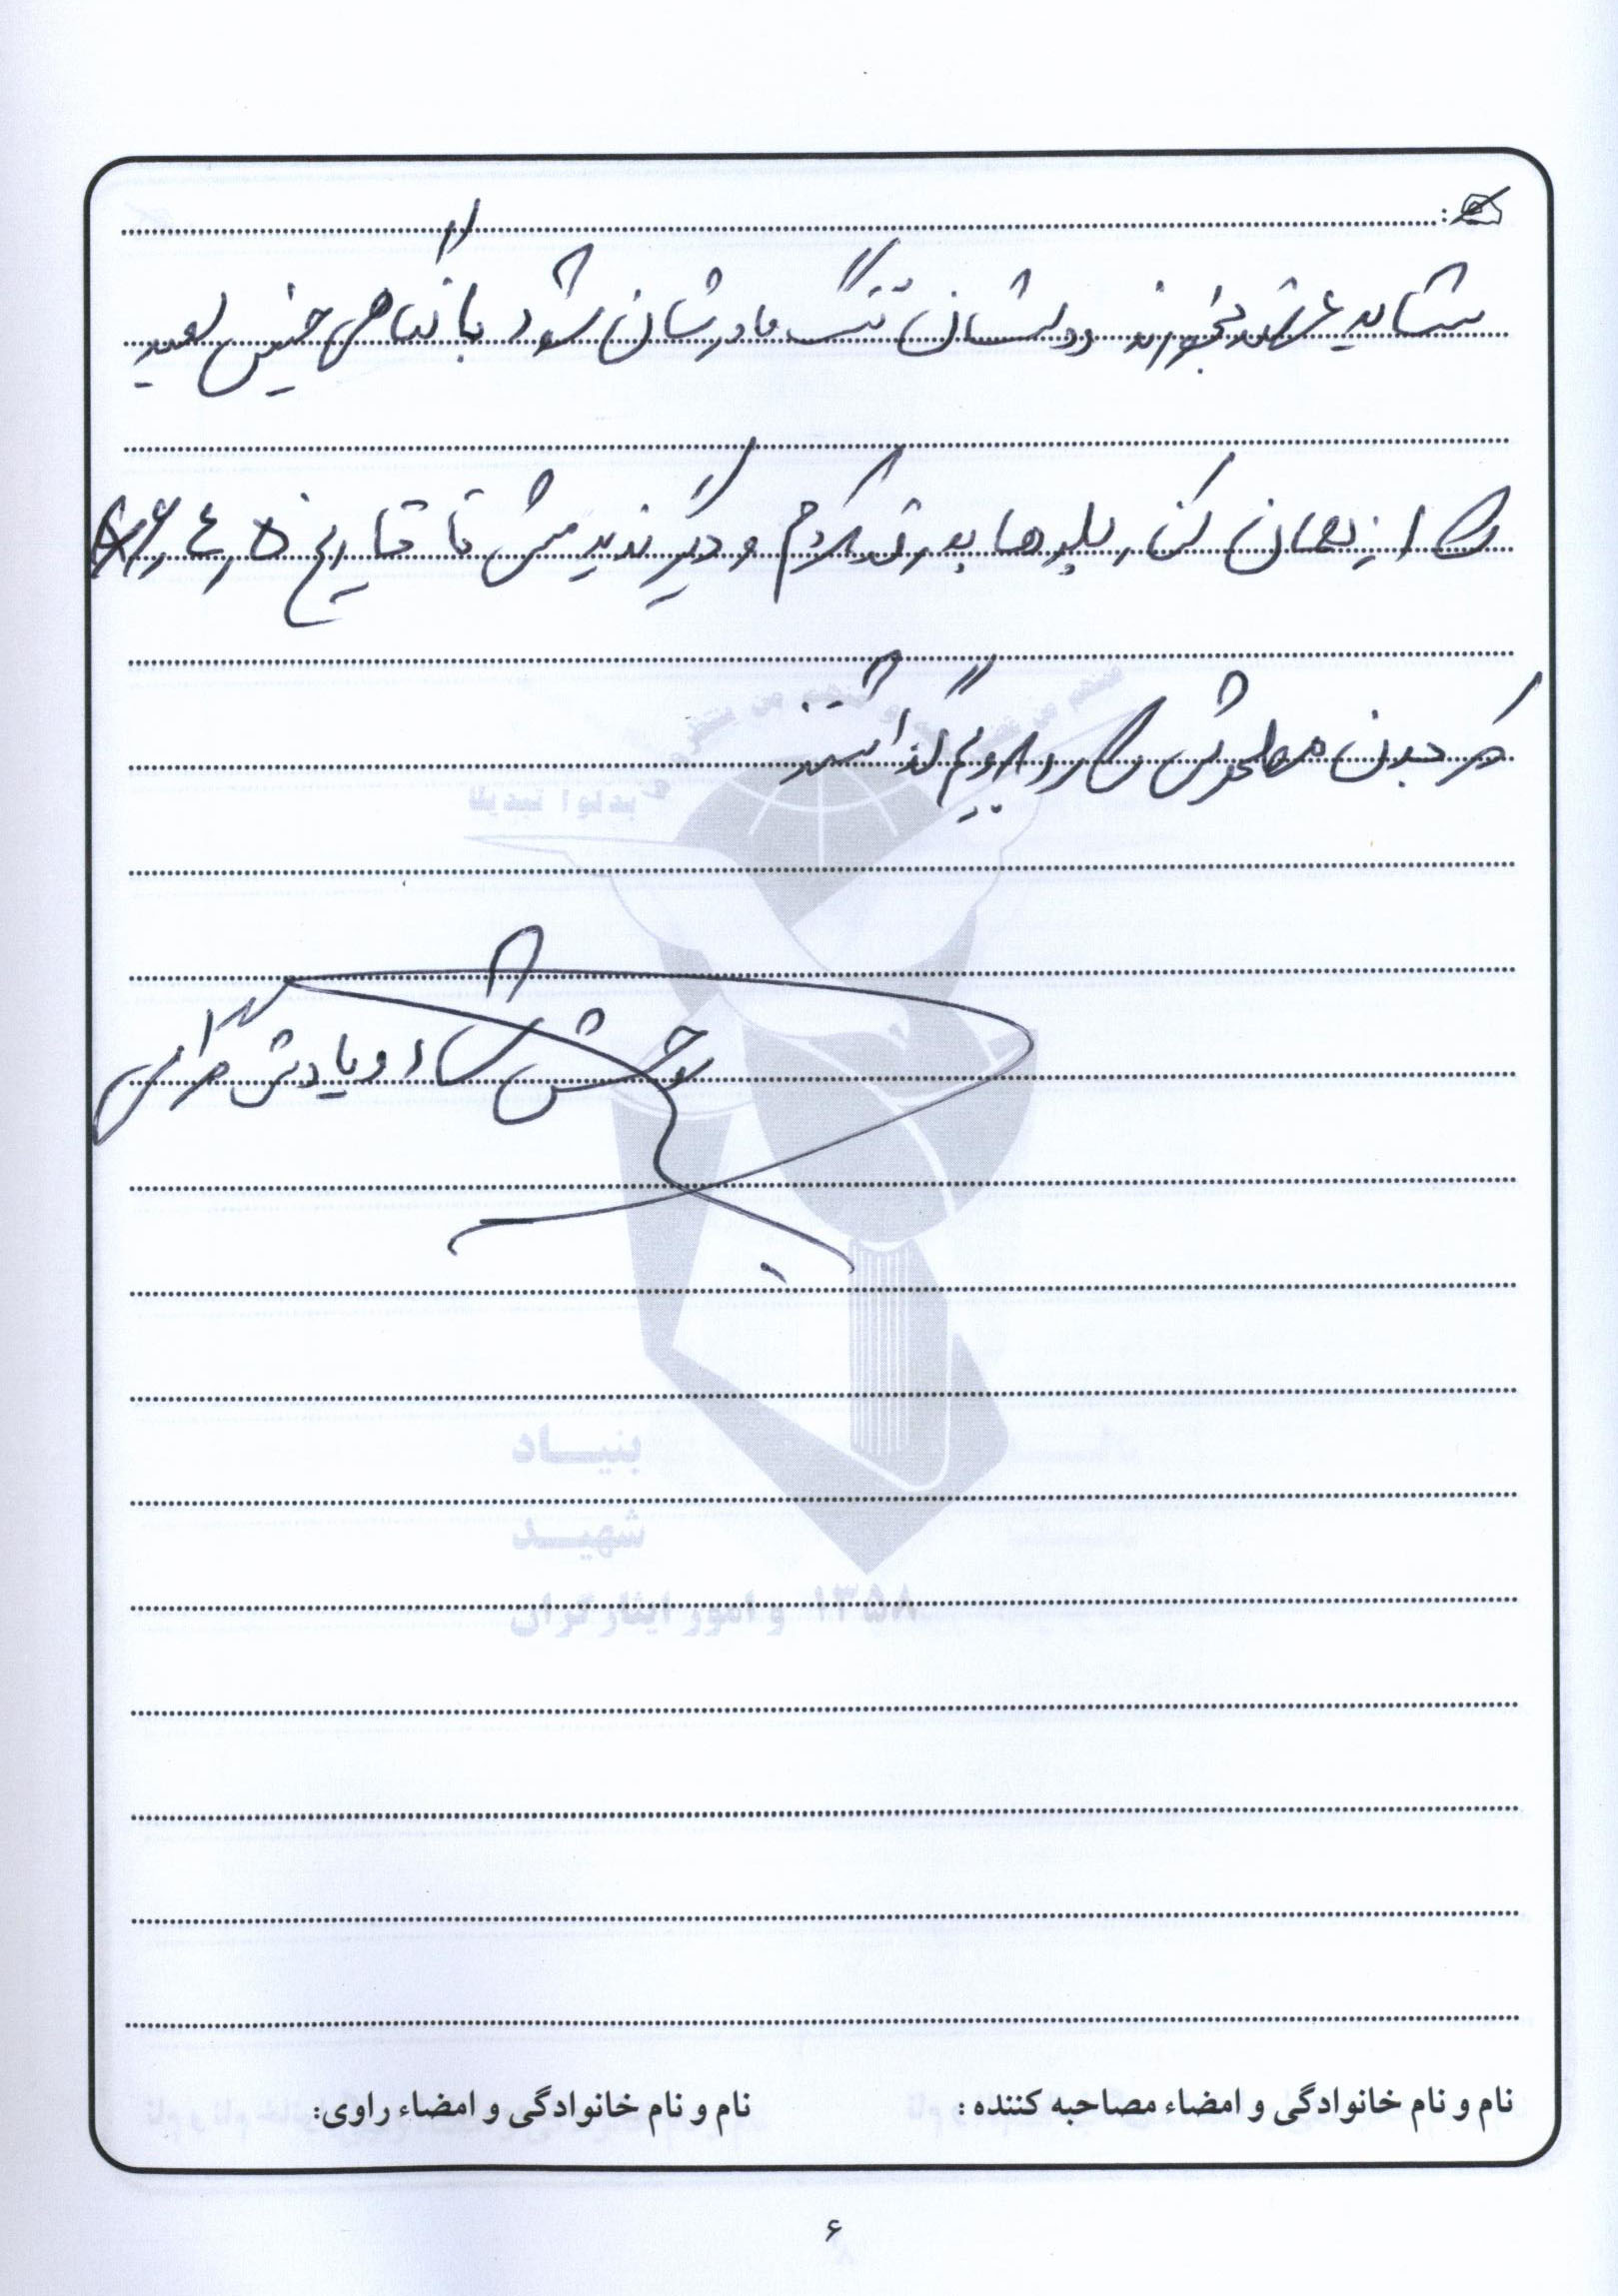 شاید غصه بخورند و دلشان تنگ مادرشان شود با نگاهی خیس سعید
را از نهان کن، پلورها بدرقه کردم و دیگر ندیدمش تا تاریخ ۵، ۴، ۸۶
که بدن مطهرش را روبرویم گذاشتند
روحش شاد و یادش گرامی
بنیاد
شهید
۱۳۵۸ و امور ایثارگران
نام و نام خانوادگی و امضاء مصاحبه کننده :
نام و نام خانوادگی و امضاء راوی:
۶